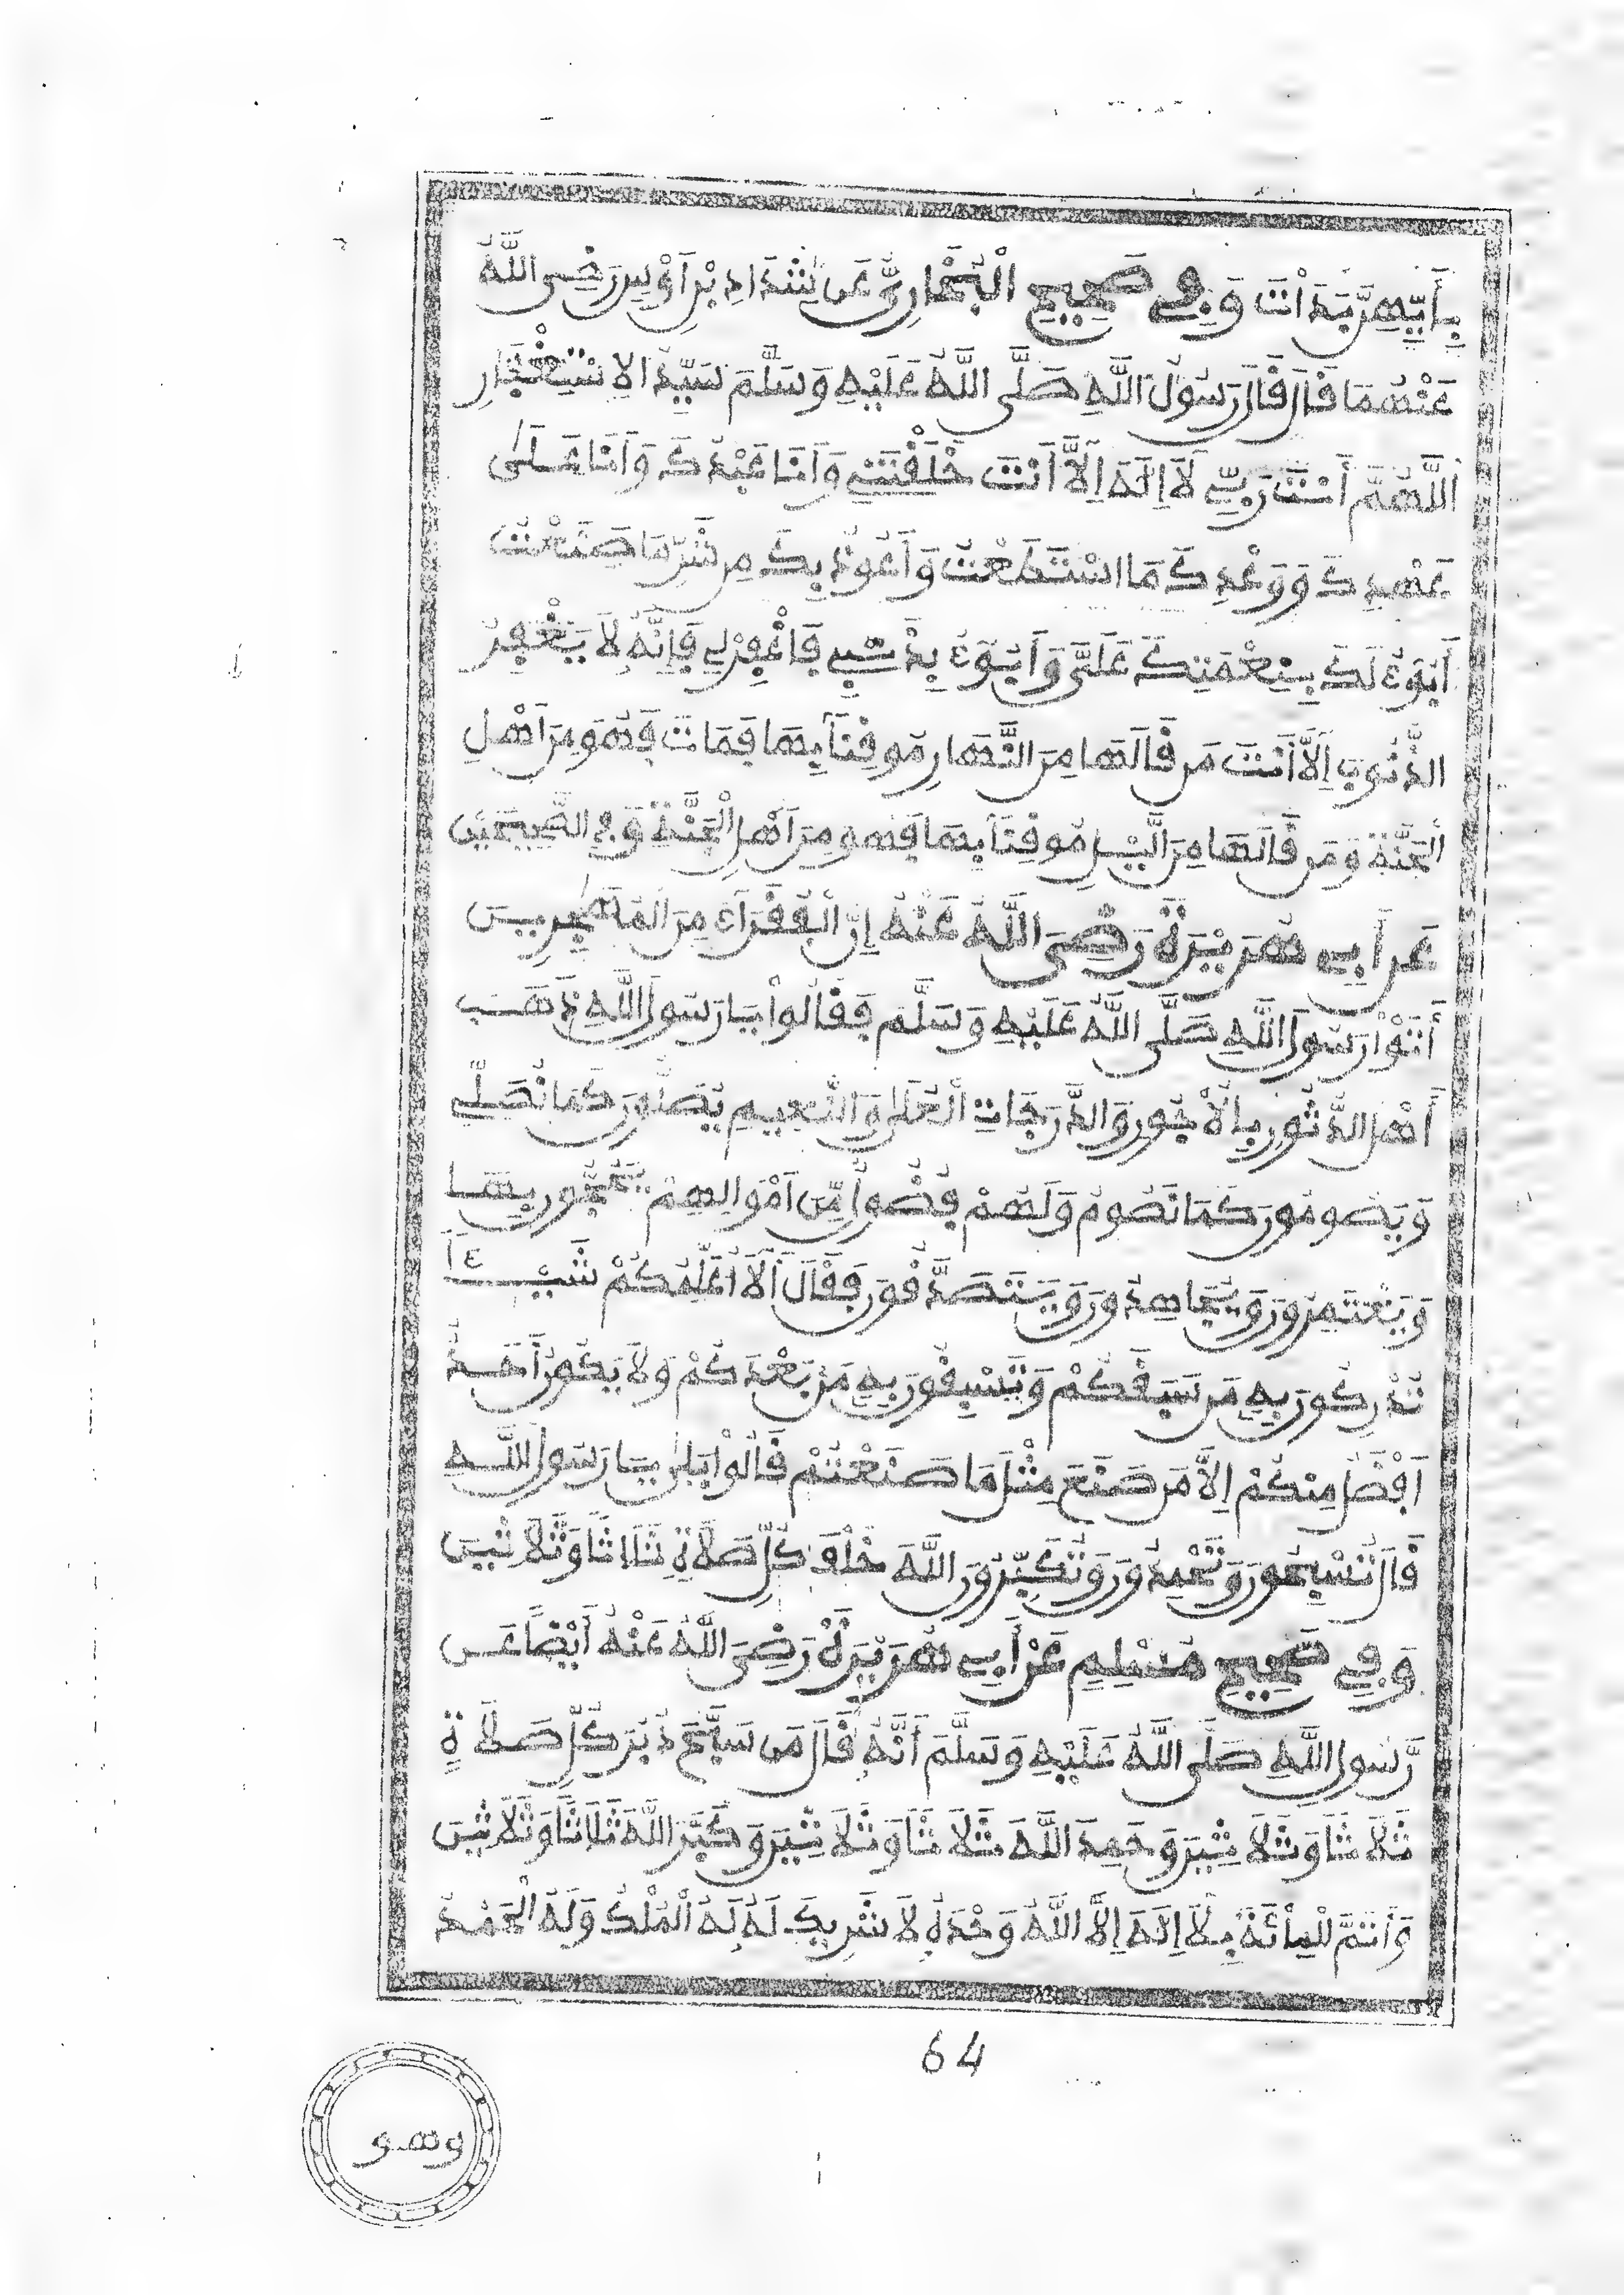 بِأَيِّهِمَا بَدَأْتَ وَفِي صَحِيحِ الْبُخَارِيِّ عَن شَدَّادِ بْنِ أَوْسٍ رَضِيَ اللَّهُ
عَنْهُمَا قَالَ قَالَ رَسُولُ اللَّهِ صَلَّى اللَّهُ عَلَيْهِ وَسَلَّمَ سَيِّدُ الِاسْتِغْفَارِ
اللَّهُمَّ أَنتَ رَبِّي لَا إِلَهَ إِلَّا أَنْتَ خَلَقْتَنِي وَأَنَا عَبْدُكَ وَأَنَا عَلَى
عَهْدِكَ وَوَعْدِكَ مَا اسْتَطَعْتُ وَأَعُوذُ بِكَ مِن شَرِّ مَا صَنَعْتُ
أَبُوءُ لَكَ بِنِعْمَتِكَ عَلَيَّ وَأَبُوءُ بِذَنْبِي فَاغْفِرْ لِي فَإِنَّهُ لَا يَغْفِرُ
الذُّنُوبَ إِلَّا أَنتَ مَن قَالَهَا مِنَ النَّهَارِ مُوقِنًا بِهَا فَمَاتَ فَهُوَ مِنَ أَهْلِ
الْجَنَّةِ وَمَن قَالَهَا مِنَ الَّيْلِ مُوقِنًا بِهَا فَهُوَ مِنَ أَهْلِ الْجَنَّةِ وَفِي الصَّحِيحَيْنِ
عَنَ أَبِي هُرَيْرَةَ رَضِيَ اللَّهُ عَنْهُ إِنَّ الْفُقَرَاءَ مِنَ الْمُهَاجِرِينَ
أَتَوْا رَسُولَ اللَّهِ صَلَّى اللَّهُ عَلَيْهِ وَسَلَّمَ فَقَالُوا يَا رَسُولَ اللَّهِ ذَهَبَ
أَهْلُ الدُّثُورِ بِالْأُجُورِ وَالدَّرَجَاتِ الْعُلَى وَالنَّعِيمِ يُصَلُّونَ كَمَا نُصَلِّي
وَيَصُومُونَ كَمَا نَصُومُ وَلَهُمْ فُضُولٌ مِّنَ أَمْوَالِهِمْ يَحُجُّونَ بِهَا
وَيَعْتَمِرُونَ وَيُجَاهِدُونَ وَيَتَصَدَّقُونَ فَقَالَ أَلَا أُعَلِّمُكُمْ شَيْءًا
تُدْرِكُونَ بِهِ مَن سَبَقَكُمْ وَتَسْبِقُونَ بِهِ مَن بَعْدَكُمْ وَلَا يَكُونُ أَحَدٌ
أَفْضَلَ مِنكُمْ إِلَّا مَن صَنَعَ مِثْلَ مَا صَنَعْتُمْ قَالُوا بَلَى يَا رَسُولَ اللَّهِ
قَالَ تُسَبِّحُونَ وَتَحْمِدُونَ وَتُكَبِّرُونَ اللَّهَ خَلْفَ كُلِّ صَلَاةٍ ثَلَاثًا وَثَلَاثِينَ
وَفِي صَحِيحِ مُسْلِمٍ عَنْ أَبِي هُرَيْرَةَ رَضِيَ اللَّهُ عَنْهُ أَيْضًا عَن
رَّسُولِ اللَّهِ صَلَّى اللَّهُ عَلَيْهِ وَسَلَّمَ أَنَّهُ قَالَ مَن سَبَّحَ دُبُرَ كُلِّ صَلَاةٍ
ثَلَاثًا وَثَلَاثِينَ وَحَمِدَ اللَّهَ ثَلَاثًا وَثَلَاثِينَ وَكَبَّرَ اللَّهَ ثَلَاثًا وَثَلَاثِينَ
وَأَتَمَّ لِلْمِائَةِ بِلَا إِلَهَ إِلَّا اللَّهُ وَحْدَهُ لَا شَرِيكَ لَهُ لَهُ الْمُلْكُ وَلَهُ الْحَمْدُ
64
وهو